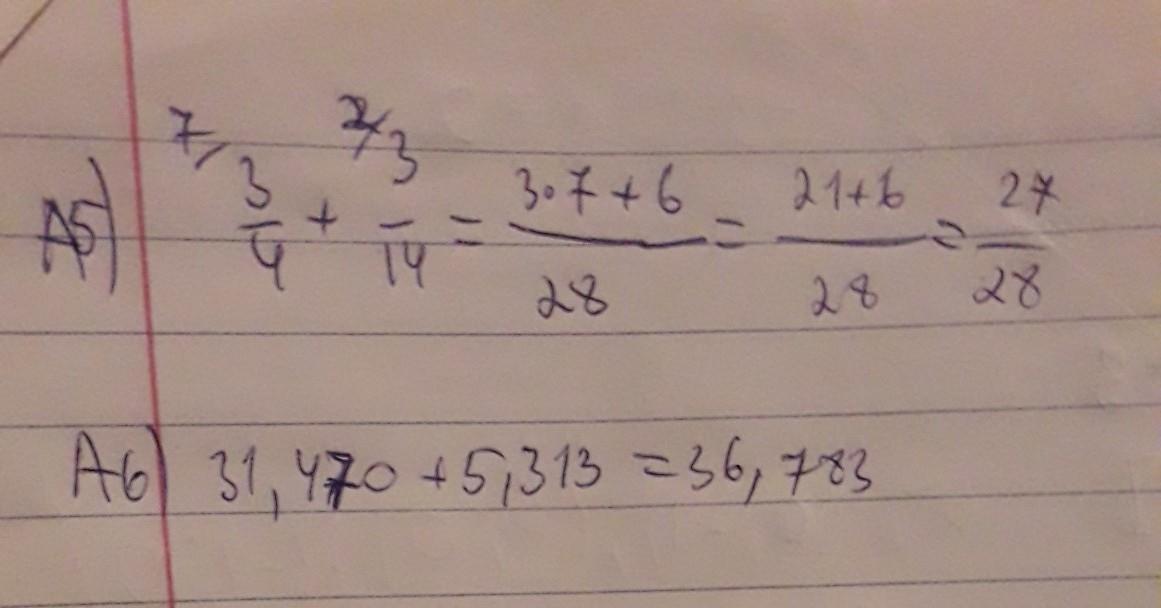 7/ 2/
A5) 3/4 + 3/14 = 3·7+6/28 = 21+6/28 = 27/28
A6) 31,470 + 5,313 = 36,783